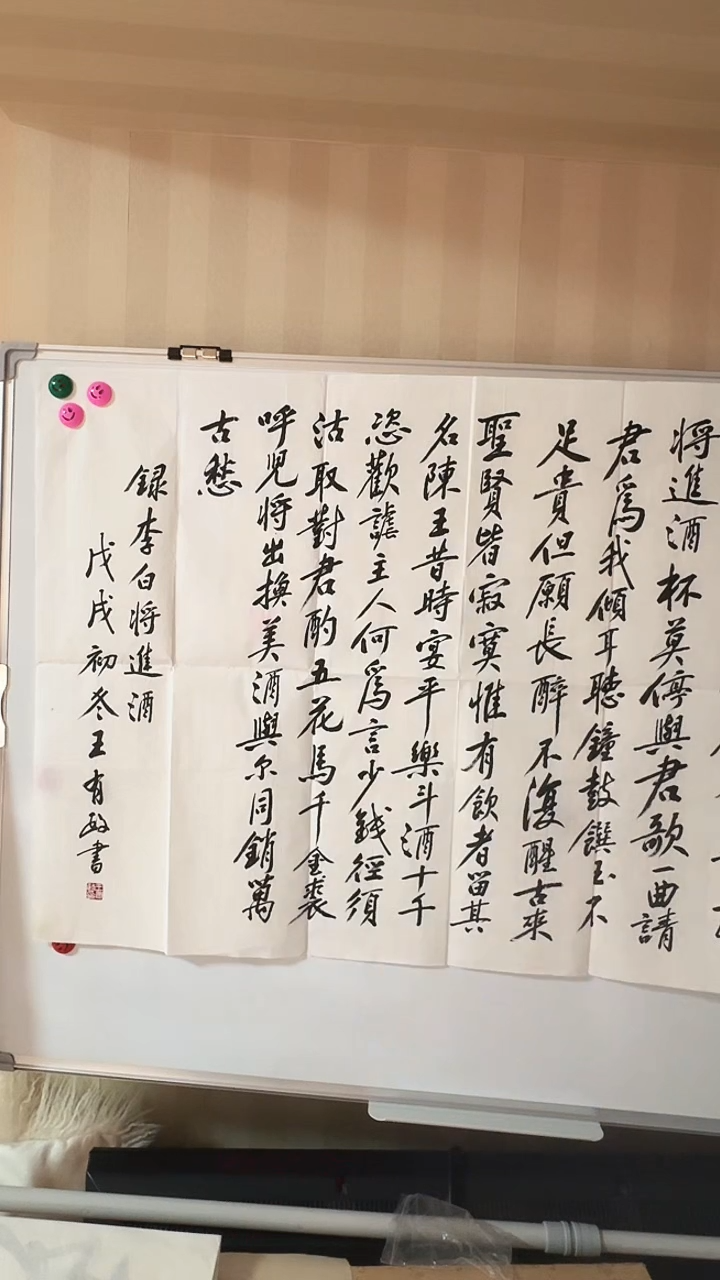 将進酒杯莫停與君歌一曲請
君爲我傾耳聽鐘鼓饌玉不
足貴但願長醉不復醒古來
聖賢皆寂寞惟有飲者留其
名陳王昔時宴平樂斗酒十千
恣歡謔主人何爲言少錢徑須
沽取對君酌五花馬千金裘
呼児将出換美酒與尔同銷萬
古愁
録李白将進酒
戊戌初冬王有政書